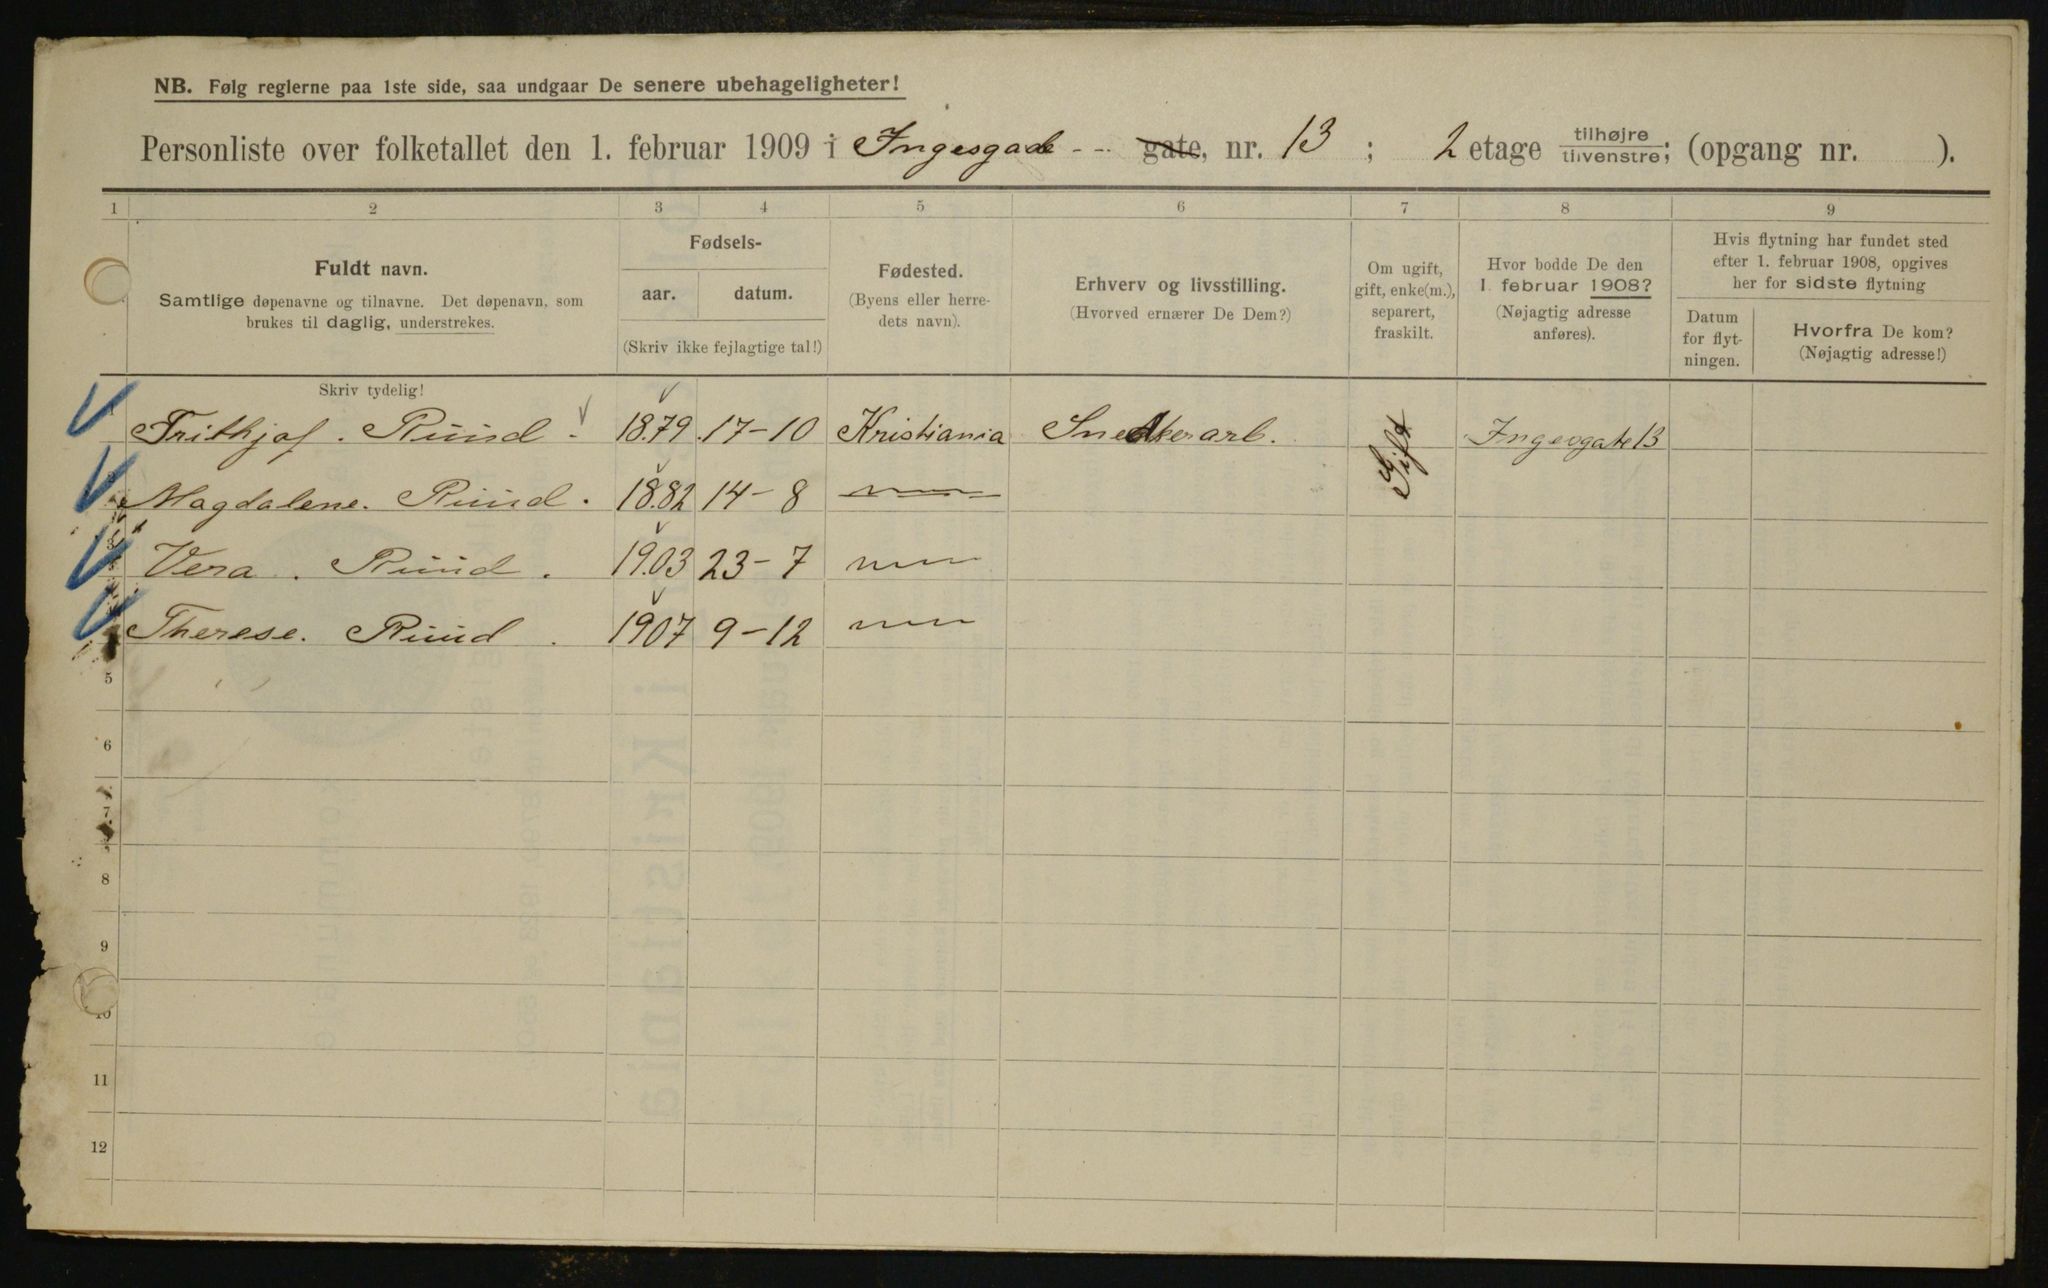 NB. Følg reglerne paa 1ste side, saa undgaar De senere ubehageligheter!
Personliste over folketallet den 1. februar 1909 i Ingesgade - - gate, nr. 13 ; 2 etage tilhøjre tilvenstre; (opgang nr. ).
1 2 3 4 5 6 7 8 9
Fuldt navn.
Samtlige døpenavne og tilnavne. Det døpenavn, som
brukes til daglig, understrekes.
Fødsels-
aar. datum.
(Skriv ikke fejlagtige tal!)
Fødested.
(Byens eller herre-
dets navn).
Erhverv og livsstilling.
(Hvorved ernærer De Dem?)
Om ugift,
gift, enke(m.),
separert,
fraskilt.
Hvor bodde De den
1. februar 1908?
(Nøjagtig adresse
anføres).
Hvis flytning har fundet sted
efter 1. februar 1908, opgives
her for sidste flytning
Datum
for flyt-
ningen.
Hvorfra De kom?
(Nøjagtig adresse!)
Skriv tydelig!
1 Frithjof. Ruud. 18.79 17-10 Kristiania Snedkerarb. Gift Ingesgate 13
Magdalene. Ruud. 18.82 14-8
3 Vera. Ruud. 19.03 23-7
Therese. Ruud. 1907 9-12
5
6
7
8
9
10
11
12